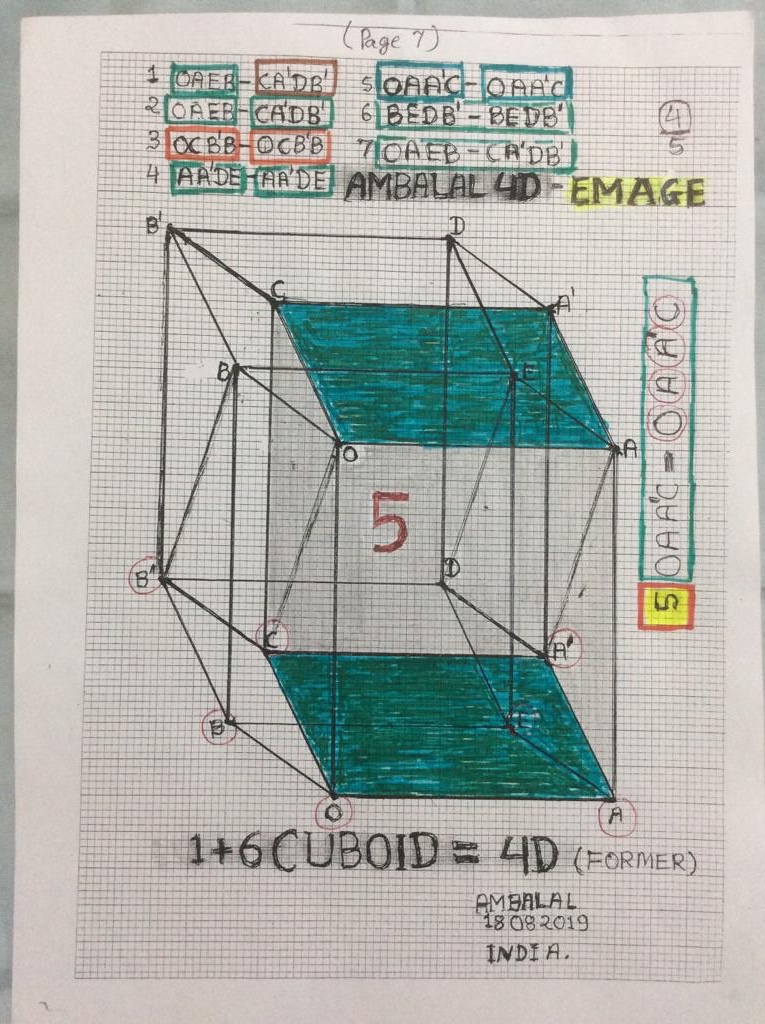 (Page 7)
1 OAEB-CA'DB' 5 OAA'C-OAA'C
2 OAEB-CA'DB' 6 BEDB'-BEDB'
3 OCB'B-OCB'B 7 OAEB-CA'DB'
4 AA'DE-AA'DE AMBALAL 4D-EMAGE
4
5
B' D
C A'
B E
O A
5
5 OAA'C = OAA'C
B' D
C A'
B E
O A
1+6 CUBOID = 4D (FORMER)
AMBALAL
18082019
INDIA.